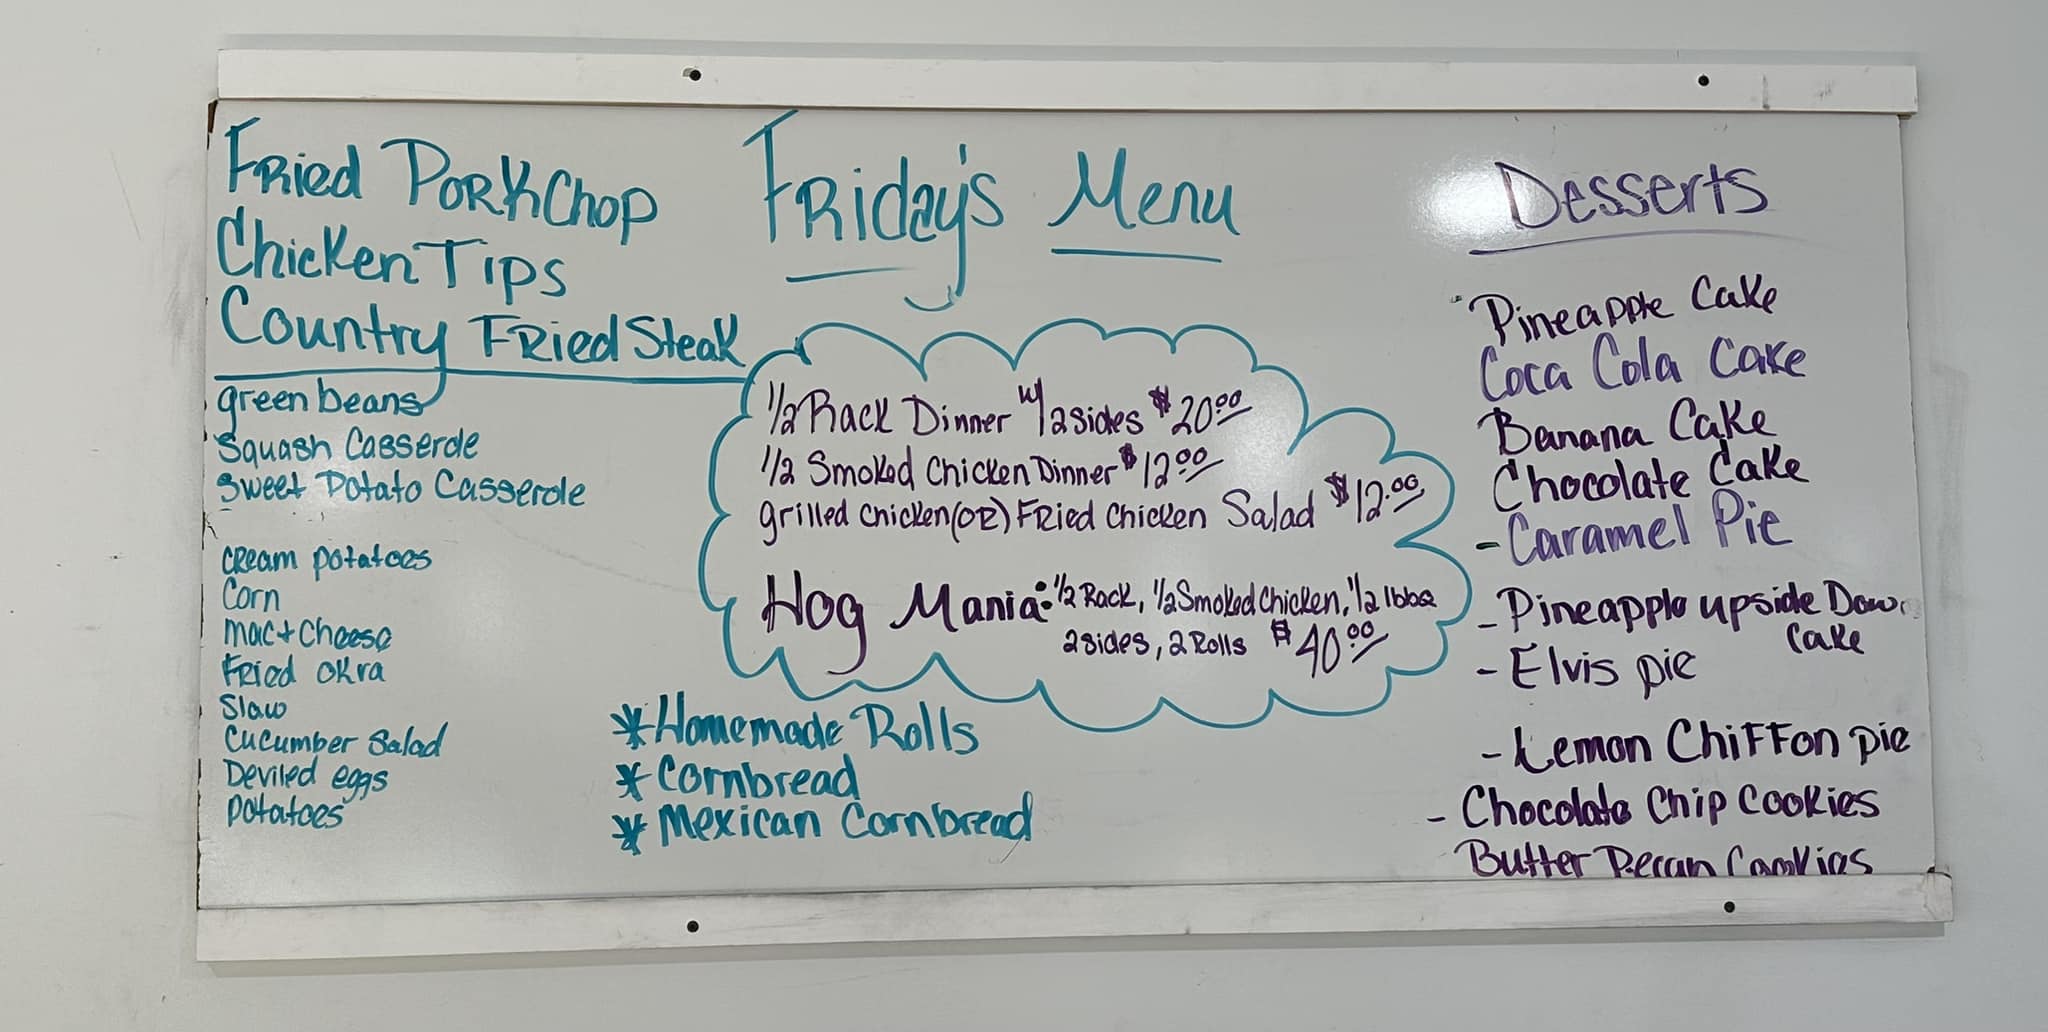 Friday's Menu
Fried Pork Chop
Chicken Tips
Country Fried Steak
green beans
Squash Casserole
Sweet Potato Casserole
Cream potatoes
Corn
Mac + Cheese
Fried Okra
Slaw
Cucumber Salad
Deviled eggs
Potatoes
1/2 Rack Dinner w/ 2 sides $20.00
1/2 Smoked Chicken Dinner $12.00
grilled chicken (OR) Fried Chicken Salad $12.00
Hog Mania: 1/2 Rack, 1/2 Smoked Chicken, 1/2 lb bbq
2 sides, 2 Rolls $40.00
* Homemade Rolls
* Cornbread
* Mexican Cornbread
Desserts
Pineapple Cake
Coca Cola Cake
Banana Cake
Chocolate Cake
- Caramel Pie
- Pineapple upside Down
Cake
- Elvis pie
- Lemon Chiffon pie
- Chocolate Chip Cookies
Butter Pecan Cookies